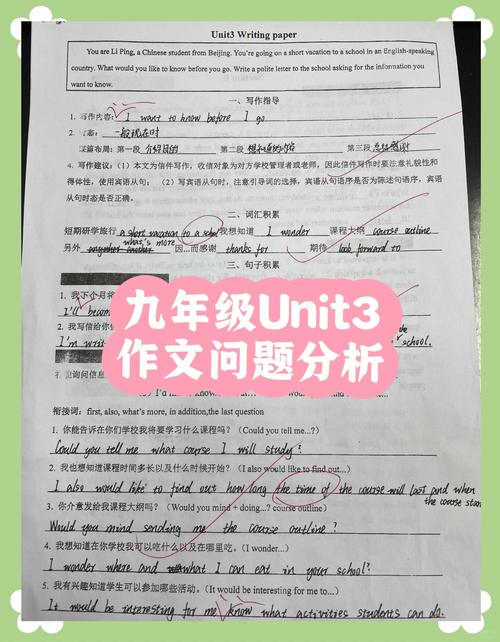 Unit3 Writing paper
You are Li Ping, a Chinese student from Beijing. You're going on a short vacation to a school in an English-speaking
country. What would you like to know before you go. Write a polite letter to the school asking for the information
you want to know.
一、写作指导
1. 写作内容: I want to know before I go
2. 态: 一般现在时
篇布局: 第一段 介绍目的 第二段 想知道的内容 第三段 总结感谢
4. 写作建议: (1) 本文为信件写作, 收信对象为对方学校管理者或老师, 因此信件写作时要注意礼貌性和
得体性, 使用宾语从句; (2) 写宾语从句时, 注意引导词的选择, 宾语从句语序是否为陈述句语序, 宾语
从句时态是否正确.
二、词汇积累
短期研学旅行 a short vacation to a school 我想知道 I wonder 课程大纲 course outline
what's more
另外 因...而感谢 thanks for 期待 look forward to
三、句子积累
1. 我下个月将
I'll become
2. 我写信给你
I'm writ school.
九年级Unit3
作文问题分析
询问信息
衔接词: first, also, what's more, in addition,the last question
1. 你能告诉在你们学校我将要学习什么课程吗? (Could you tell me...?)
Could you tell me what course I will study?
2. 我也想知道课程时间多长以及什么时候开始? (I also would like to find out...)
I also would like to find out how long the time of the course will last and when
the course star
3. 你介意发给我课程大纲吗? (Would you mind + doing...? course outline)
Would you mind sending me the course outline?
4. 我想知道在你学校我可以吃什么以及在哪里吃。(I wonder...)
I wonder where and what I can eat in your school?
5. 我有兴趣知道学生可以参加哪些活动。(It would be interesting for me to...)
It would be interesting for me know what activities students can do.